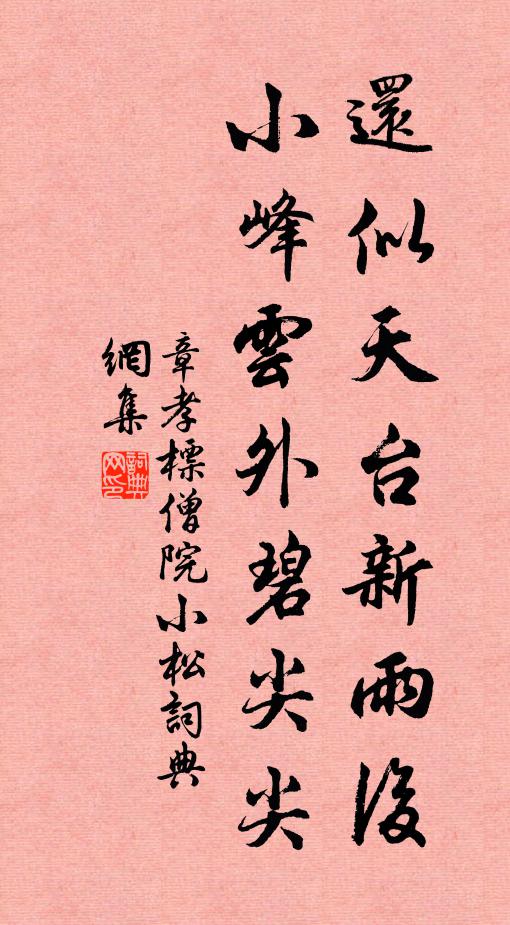 還似天台新雨後
小峰雲外碧尖尖
章孝標僧院小松詞典
網集
詞典
网印